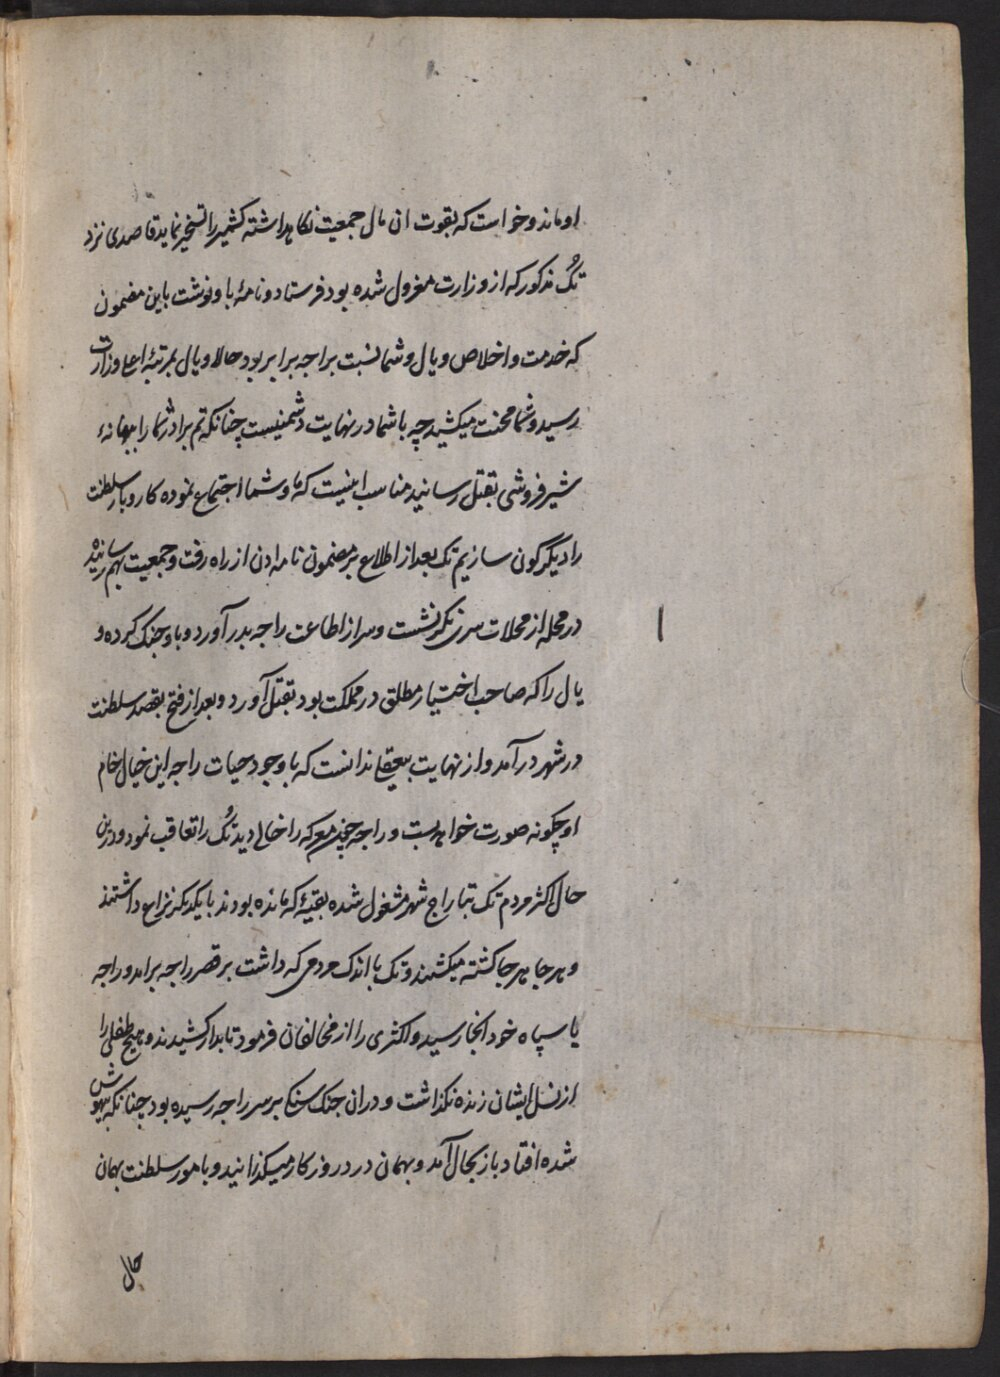 او ماند و خواست که بقوت ان مال جمعیت نکاهداشته کشمیر را تسخیر نماید قاصدی نزد
تُنک مذکور که از وزارت معزول شده بود فرستاد و نامهٔ باو نوشت باین مضمون
که خدمت و اخلاص ویال و شما نسبت براجه برابر بود حالا ویال بمرتبهٔ اعلی وزارت
رسید و شما محنت میکشید چه باشما در نهایت دشمنیست چنانکه تم برادر شما را ببهانهء
شیر فروشی بقتل رسانید مناسب اینست که ما و شما اجتماع نموده کاروبار سلطنت
را دیکرکونی سازیم تنک بعد از اطلاع بر مضمون نامه ادن از راه رفت و جمعیت بهم رسانیده
در محله از محلات سری نکر نشست و سر از اطاعت راجه بدر آورد و باو جنک کرده و
یال را که صاحب اختیار مطلق در مملکت بود بقتل آورد و بعد از فتح بقصد سلطنت
در شهر درآمد و از نهایت بیعقلی ندانست که با وجود حیات راجه این خیال خام
او چکونه صورت خواهد بست و راجه چون معرکه را خالی دید تُنک را تعاقب نمود و درین
حال اکثر مردم تنک بتاراج شهر مشغول شده بقیهٔ که مانده بودند با یکدیکر نزاع داشتند
و هر جا هر جا کشته میکشتند و تنک با اندک مردمی که داشت بر قصر راجه برامد و راجه
با سپاه خود انجا رسید و اکثری را از مخالفان فرمود تا بدار کشیدند و هیچ طفلی را
از نسل ایشان زنده نکذاشت و دران جنک سنکی بر سر راجه رسیده بود چنانکه بیهوش
شده افتاد باز بحال آمد و بهمان درد روزکار میکذرانید و بامور سلطنت بهمان
حال